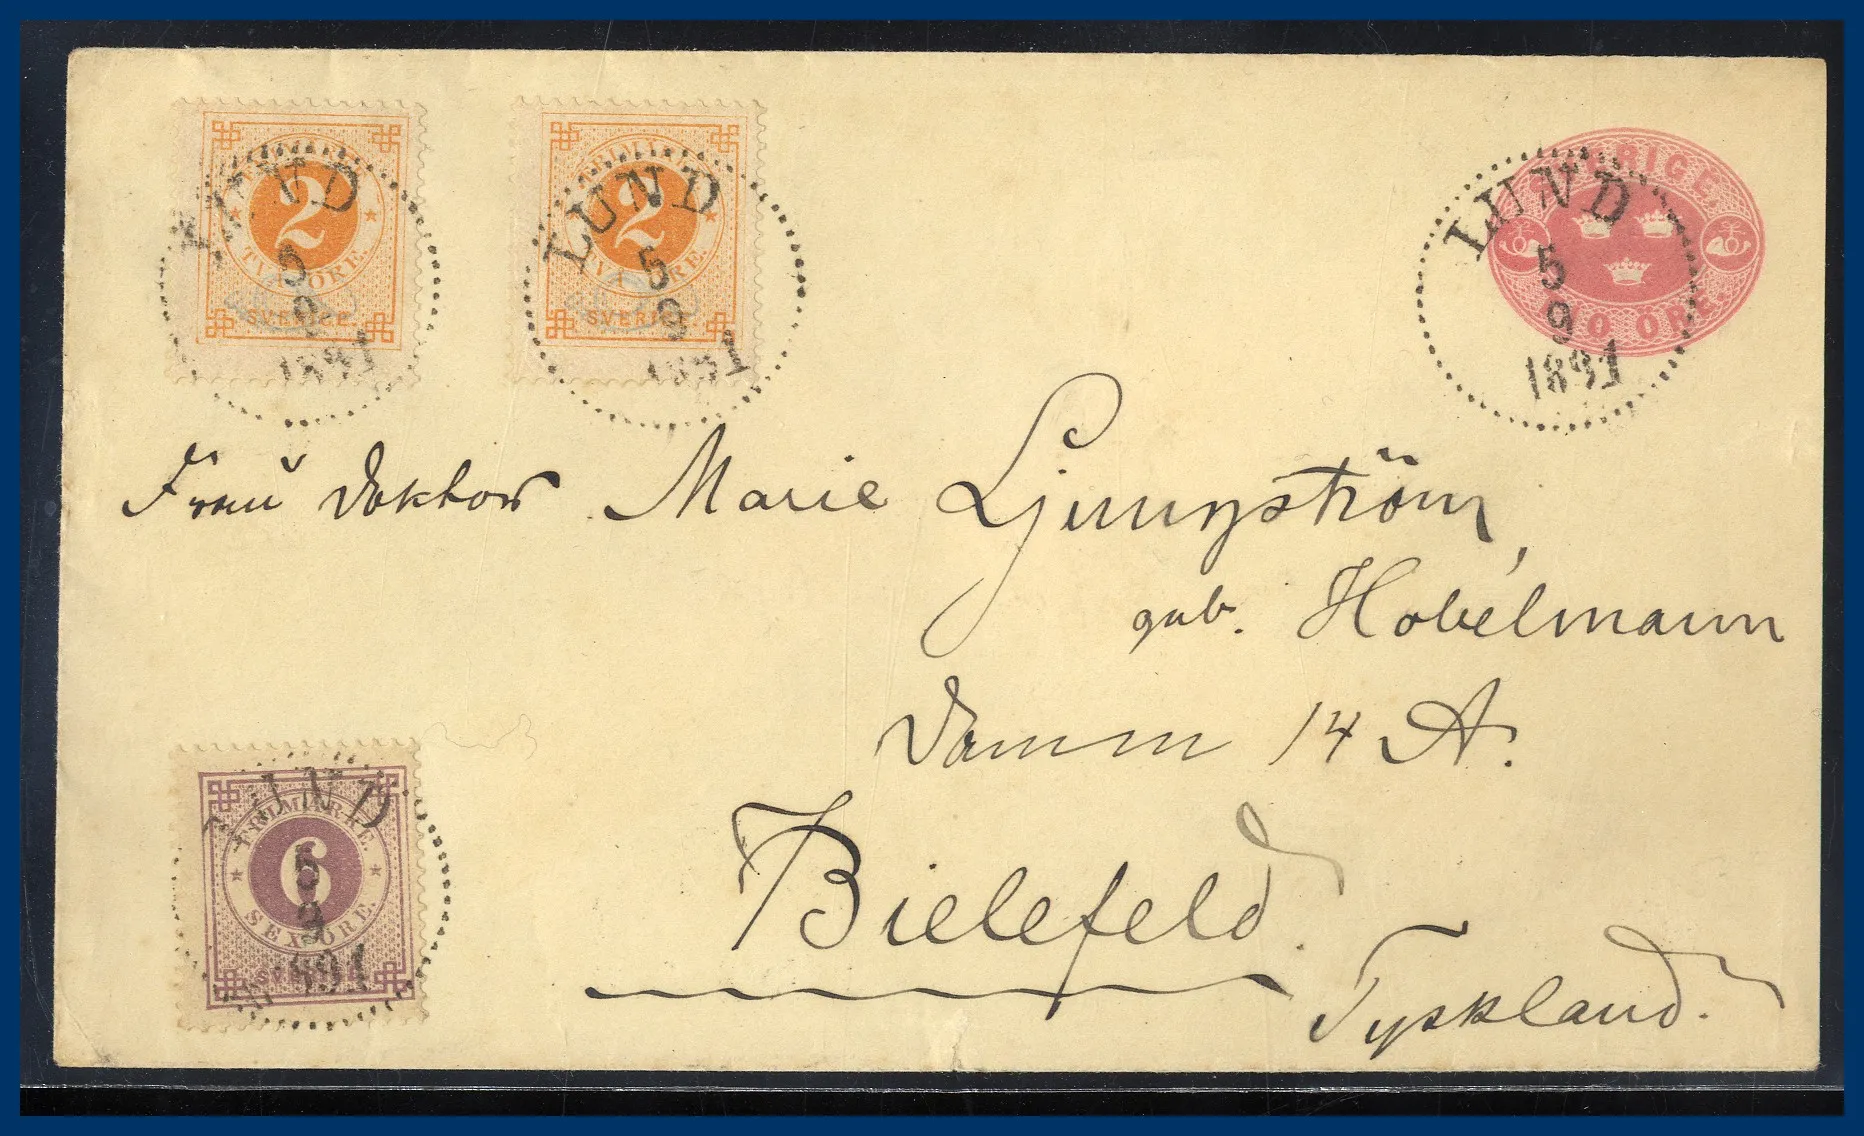 FRIMÄRKE.
2
TVÅ ÖRE.
SVERIGE.
LUND
5
9
1891
FRIMÄRKE.
2
TVÅ ÖRE.
SVERIGE.
LUND
5
9
1891
SVERIGE.
ÖRE.
LUND
5
9
1891
Frau Doktor Marie Ljungström,
geb. Hobelmann
Damm 14 A.
Bielefeld.
Tyskland.
FRIMÄRKE.
6
SEX ÖRE.
SVERIGE.
LUND
5
9
1891